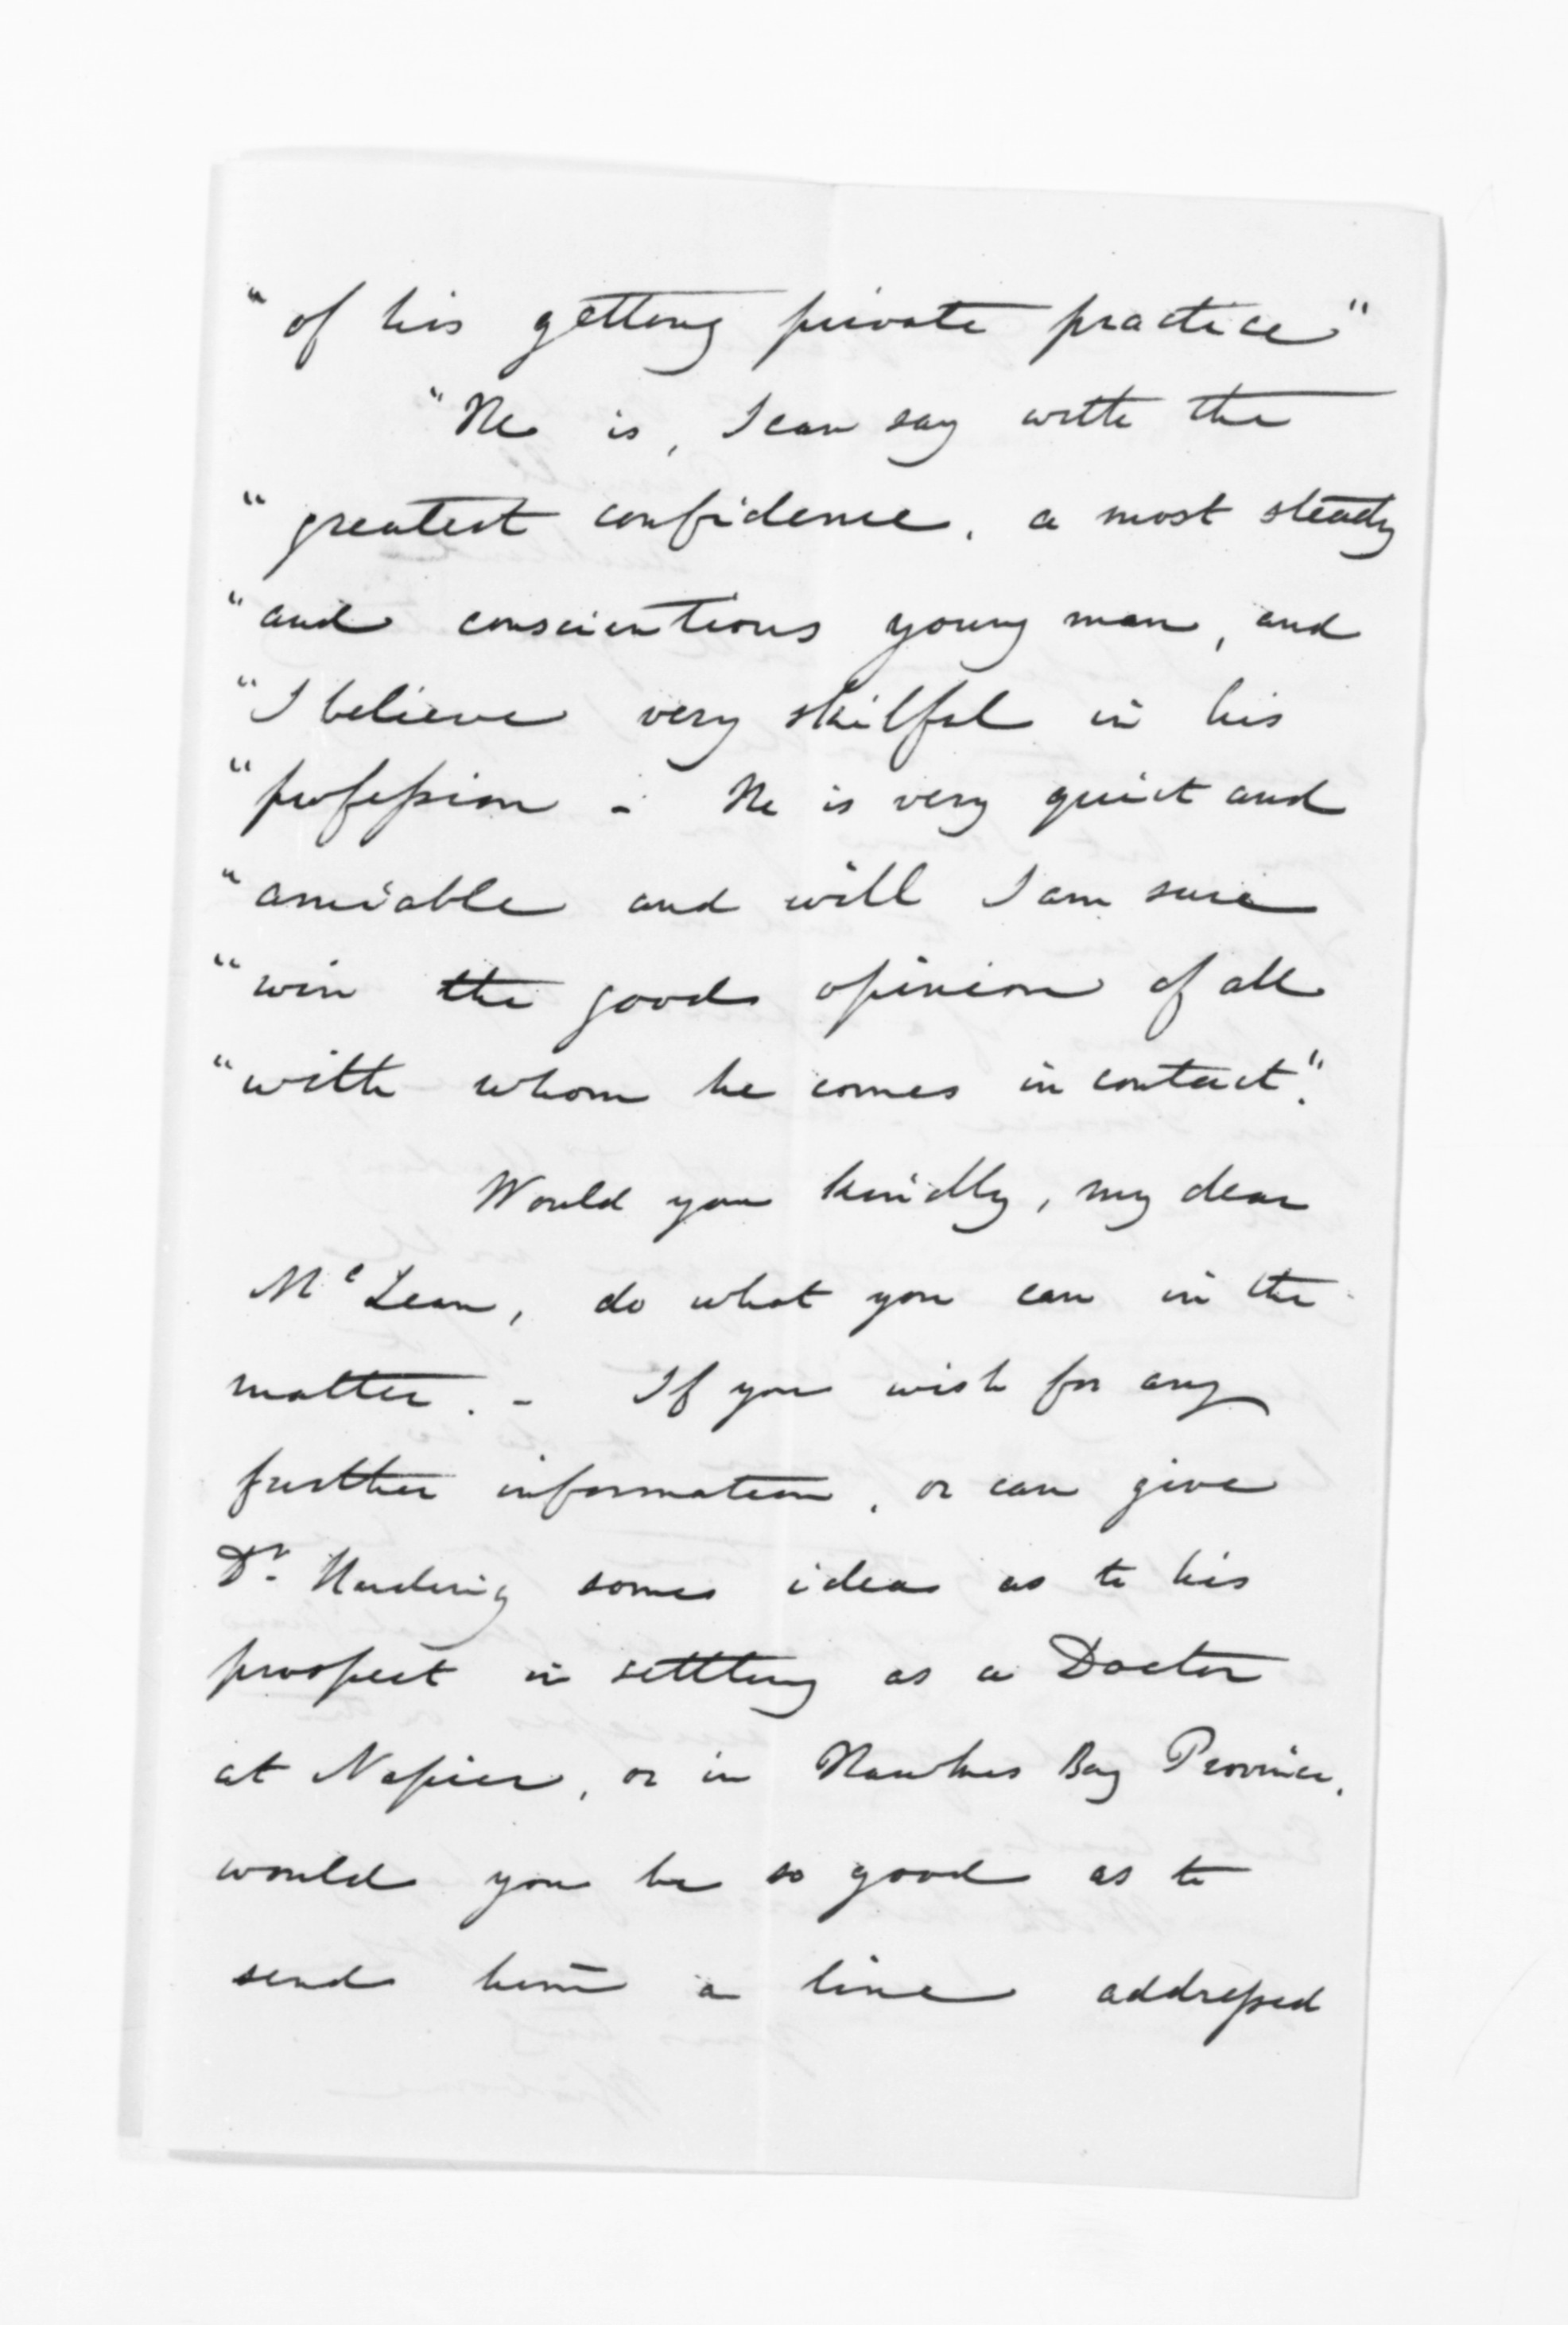 "of his getting private practice"
"He is, I can say with the
"greatest confidence, a most steady
"and conscientious young man, and
"I believe very skilful in his
"profession - He is very quiet and
"amiable and will I am sure
"win the good opinion of all
"with whom he comes in contact."
Would you kindly, my dear
McLean, do what you can in the
matter. - If you wish for any
further information, or can give
Dr. Harding some idea as to his
prospect in settling as a Doctor
at Napier, or in Hawkes Bay Province,
would you be so good as to
send him a line addressed